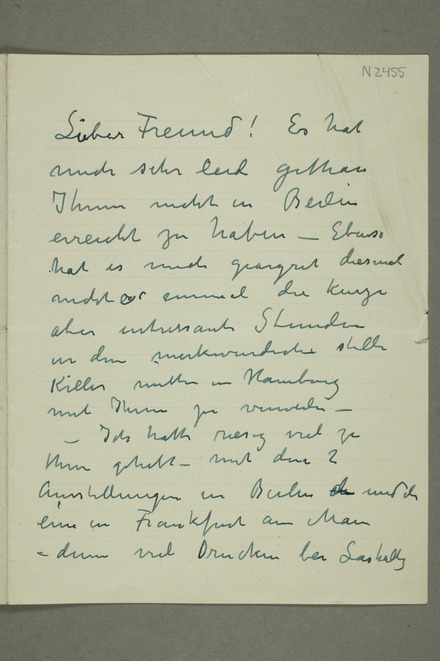 N2455
Lieber Freund! Es hat
mich sehr leid gethan
Ihnen nicht in Berlin
erreicht zu haben – Ebenso
hat es mich geärgert diesmal
nicht einmal die kurze
aber interessante Stunden
in dem merkwürdige stille
Keller mitten in Hamburg
mit Ihnen zu
– Ich hatte riesig viel zu
thun gehabt – mit den 2
Ausstellungen in Berlin und der
eine in Frankfurt am Main
– dann viel Drucken bei